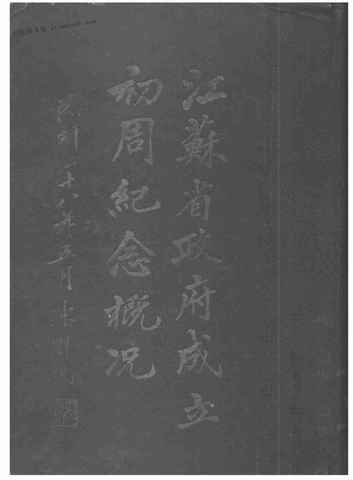 江蘇省政府成立
初周紀念概況
民國二十八年五月